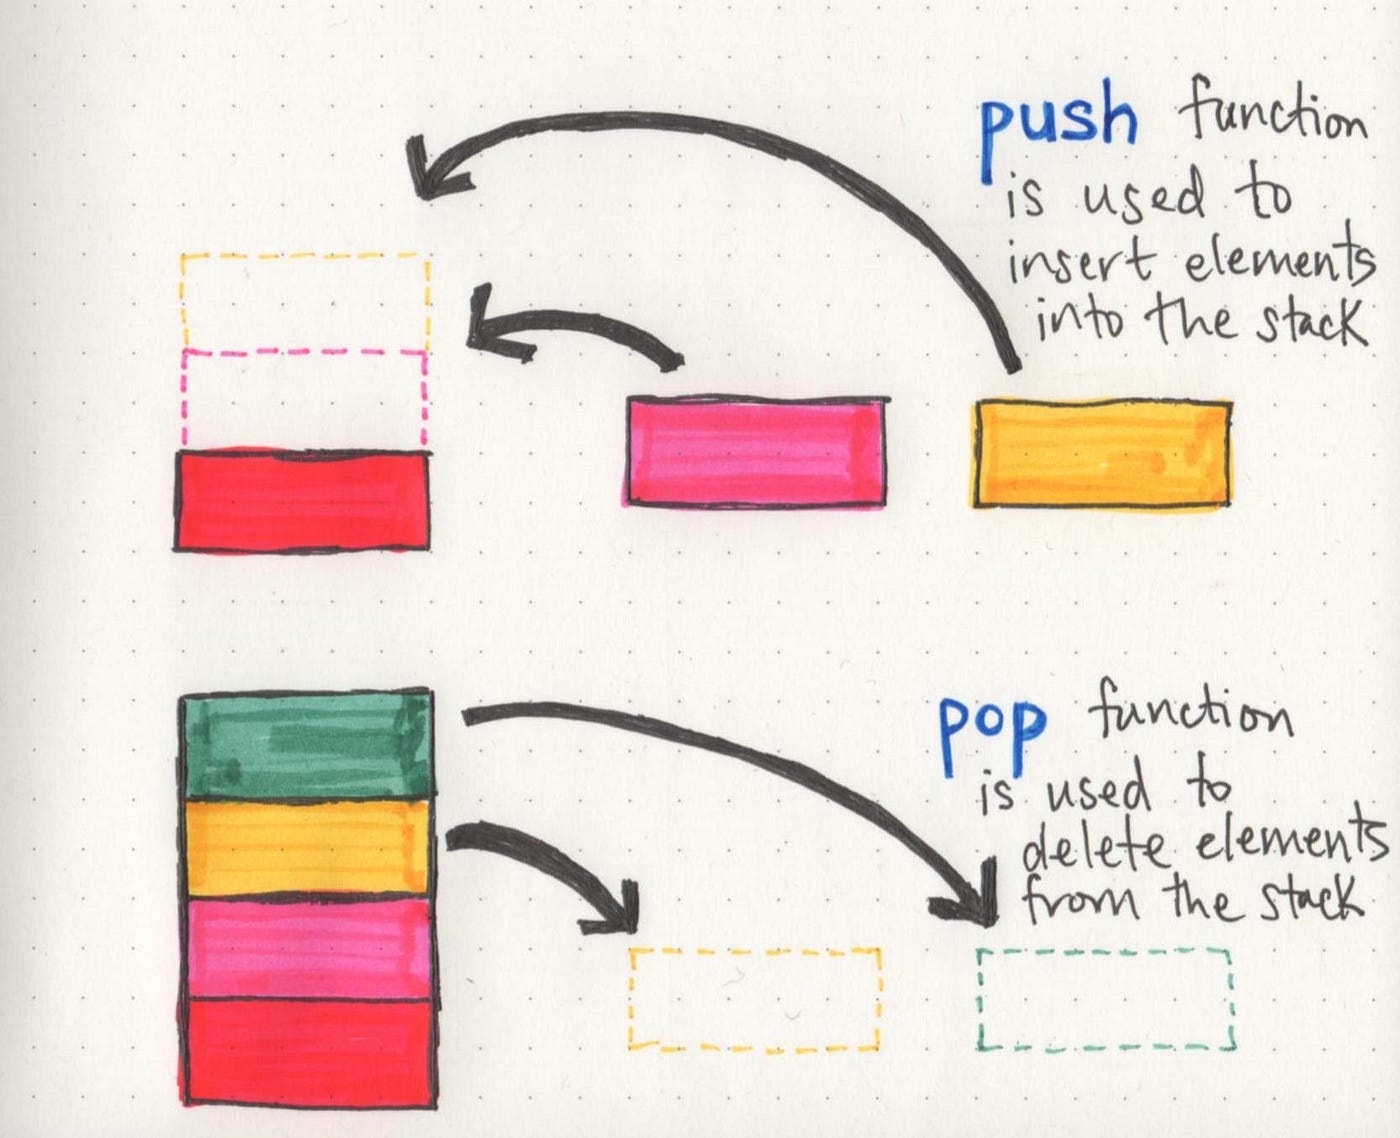 push function
is used to
insert elements
into the stack
pop function
is used to
delete elements
from the stack